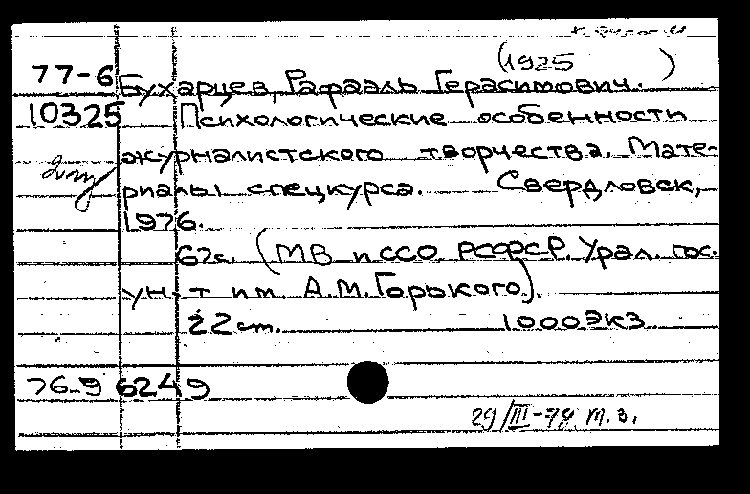 (1925 )
77-6 Бухарцев, Рафаэль Герасимович.
10325 Психологические особенности
журналистского творчества. Мате-
риалы спецкурса. Свердловск,
1976.
62с. (МВ и ССО РСФСР. Урал. гос.
ун-т им. А.М. Горького).
22 см. 1000экз
76-9 6249
29/III-77 т.з.